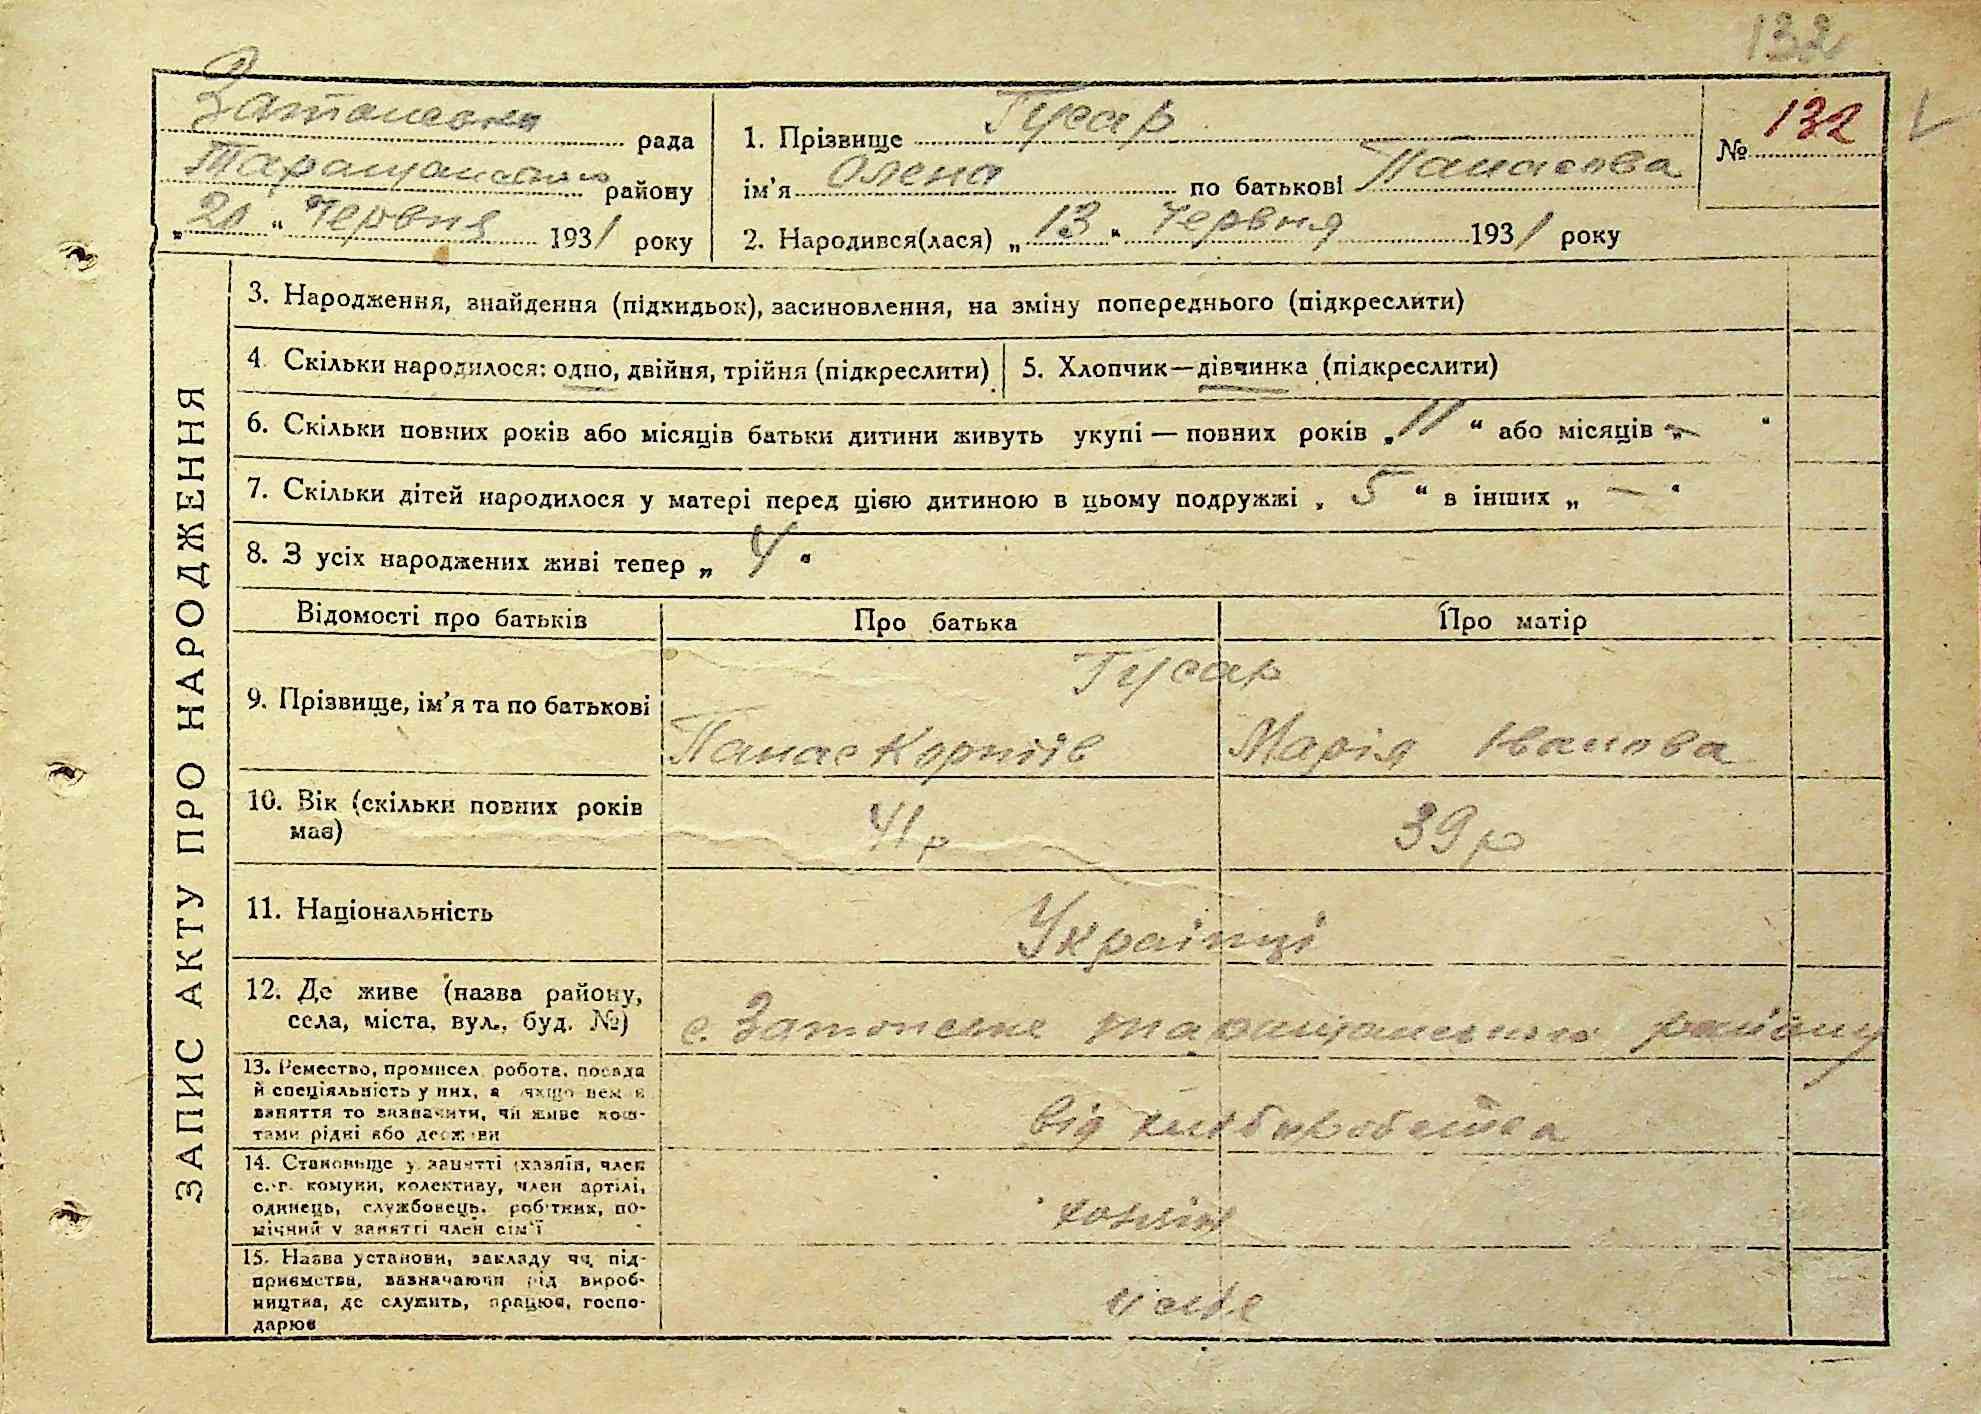 132
рада
Таращанського району
„20“ Червня 1931 року
1. Прізвище Гусар
ім'я Олена по батькові Панасова
2. Народився(лася) „13“ Червня 1931 року
№ 132
ЗАПИС АКТУ ПРО НАРОДЖЕННЯ
3. Народження, знайдення (підкидьок), засиновлення, на зміну попереднього (підкреслити)
4. Скільки народилося: одно, двійня, трійня (підкреслити)
5. Хлопчик—дівчинка (підкреслити)
6. Скільки повних років або місяців батьки дитини живуть укупі — повних років „11“ або місяців „—“
7. Скільки дітей народилося у матері перед цією дитиною в цьому подружжі „5“ в інших „—“
8. З усіх народжених живі тепер „4“
Відомості про батьків Про батька Про матір
Гусар
9. Прізвище, ім'я та по батькові
Панас Корніїв Марія Іванова
10. Вік (скільки повних років
має)
41р 39р
11. Національність
Українці
12. Де живе (назва району,
села, міста, вул., буд. №)
с. таращанського району
13. Ремество, промисел, робота, посада
й спеціяльність у них, а якщо нема
заняття то зазначити, чи живе кош-
тами рідні або держави
від хліборобства
14. Становище у занятті (хазяїн, член
с.-г. комуни, колективу, член артілі,
одинець, службовець, робітник, по-
мічний у занятті член сім'ї
хазяїн
15. Назва установи, закладу чи під-
приємства, зазначаючи рід вироб-
ництва, де служить, працює, госпо-
дарює